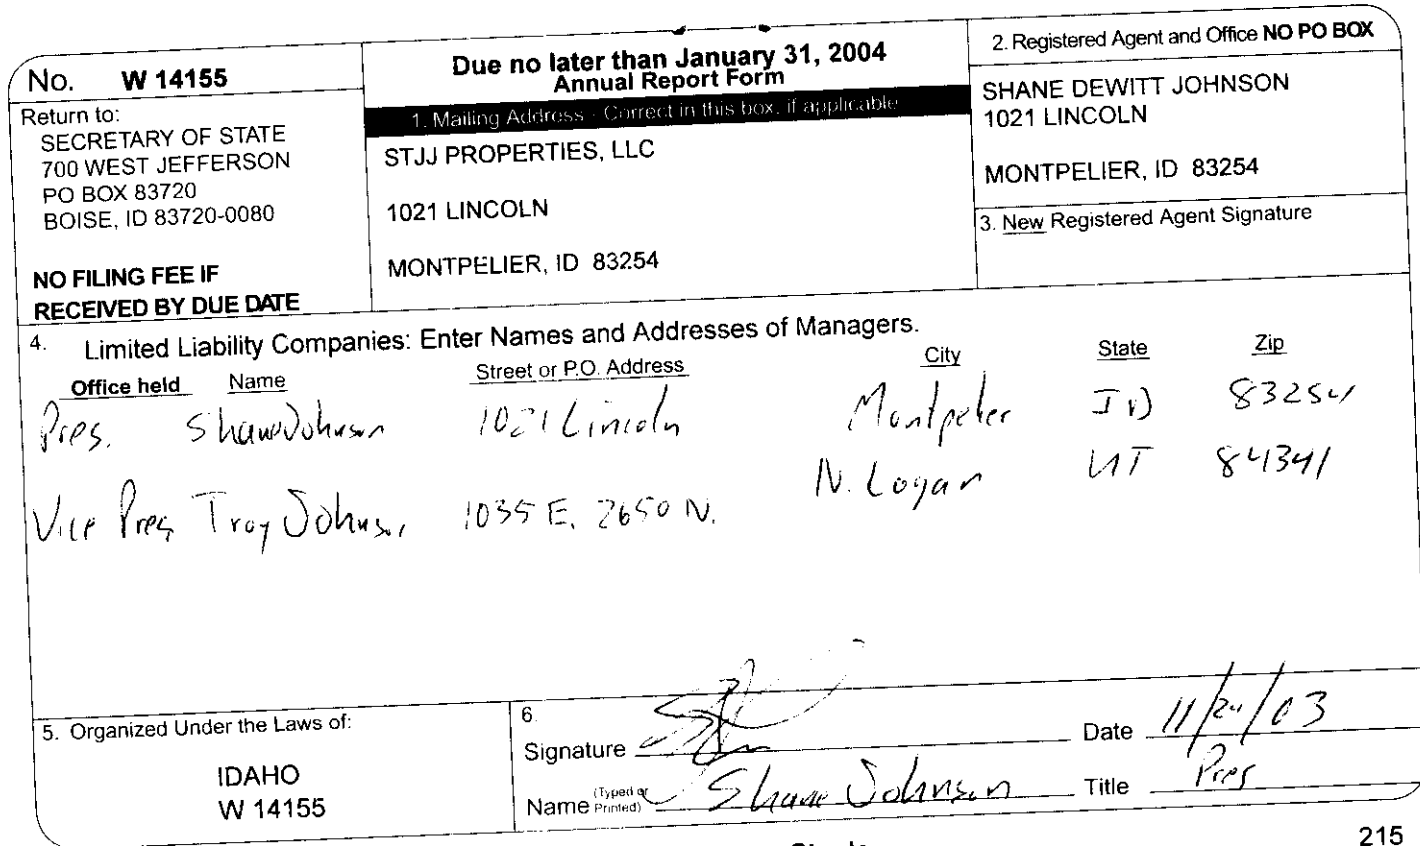 No. W 14155
Return to:
SECRETARY OF STATE
700 WEST JEFFERSON
PO BOX 83720
BOISE, ID 83720-0080
NO FILING FEE IF
RECEIVED BY DUE DATE
Due no later than January 31, 2004
Annual Report Form
1. Mailing Address - Correct in this box, if applicable
STJJ PROPERTIES, LLC
1021 LINCOLN
MONTPELIER, ID 83254
2. Registered Agent and Office NO PO BOX
SHANE DEWITT JOHNSON
1021 LINCOLN
MONTPELIER, ID 83254
3. New Registered Agent Signature
4. Limited Liability Companies: Enter Names and Addresses of Managers.
Office held Name Street or P.O. Address City State Zip
Pres. Shane Johnson 1021 Lincoln Montpelier ID 83254
Vice Pres Troy Johnson 1035 E. 2650 N. N. Logan UT 84341
5. Organized Under the Laws of:
IDAHO
W 14155
6.
Signature Date 11/24/03
Name (Typed or Printed) Shane Johnson Title Pres
215